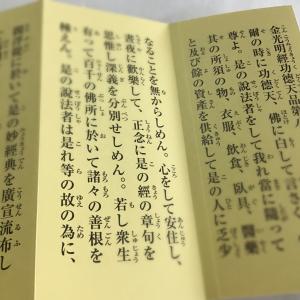 金光明經功徳天品第
爾の時に功徳天、佛に白して言さ
尊よ。是の説法者をして我れ當に隨っ
其の所須の物、衣服、飲食、臥具、醫藥
と及び餘の資産を供給して是の人に乏少
なることを無からしめん。心をして安住し、
晝夜に歡樂して、正念に是の經の章句を
思惟し深義を分別せしめん。。若し衆生
有って百千の佛所に於いて諸々の善根を
種えん、是の説法者は是れ等の故の為に、
閻浮提に於いて是の妙經典を廣宣流布し